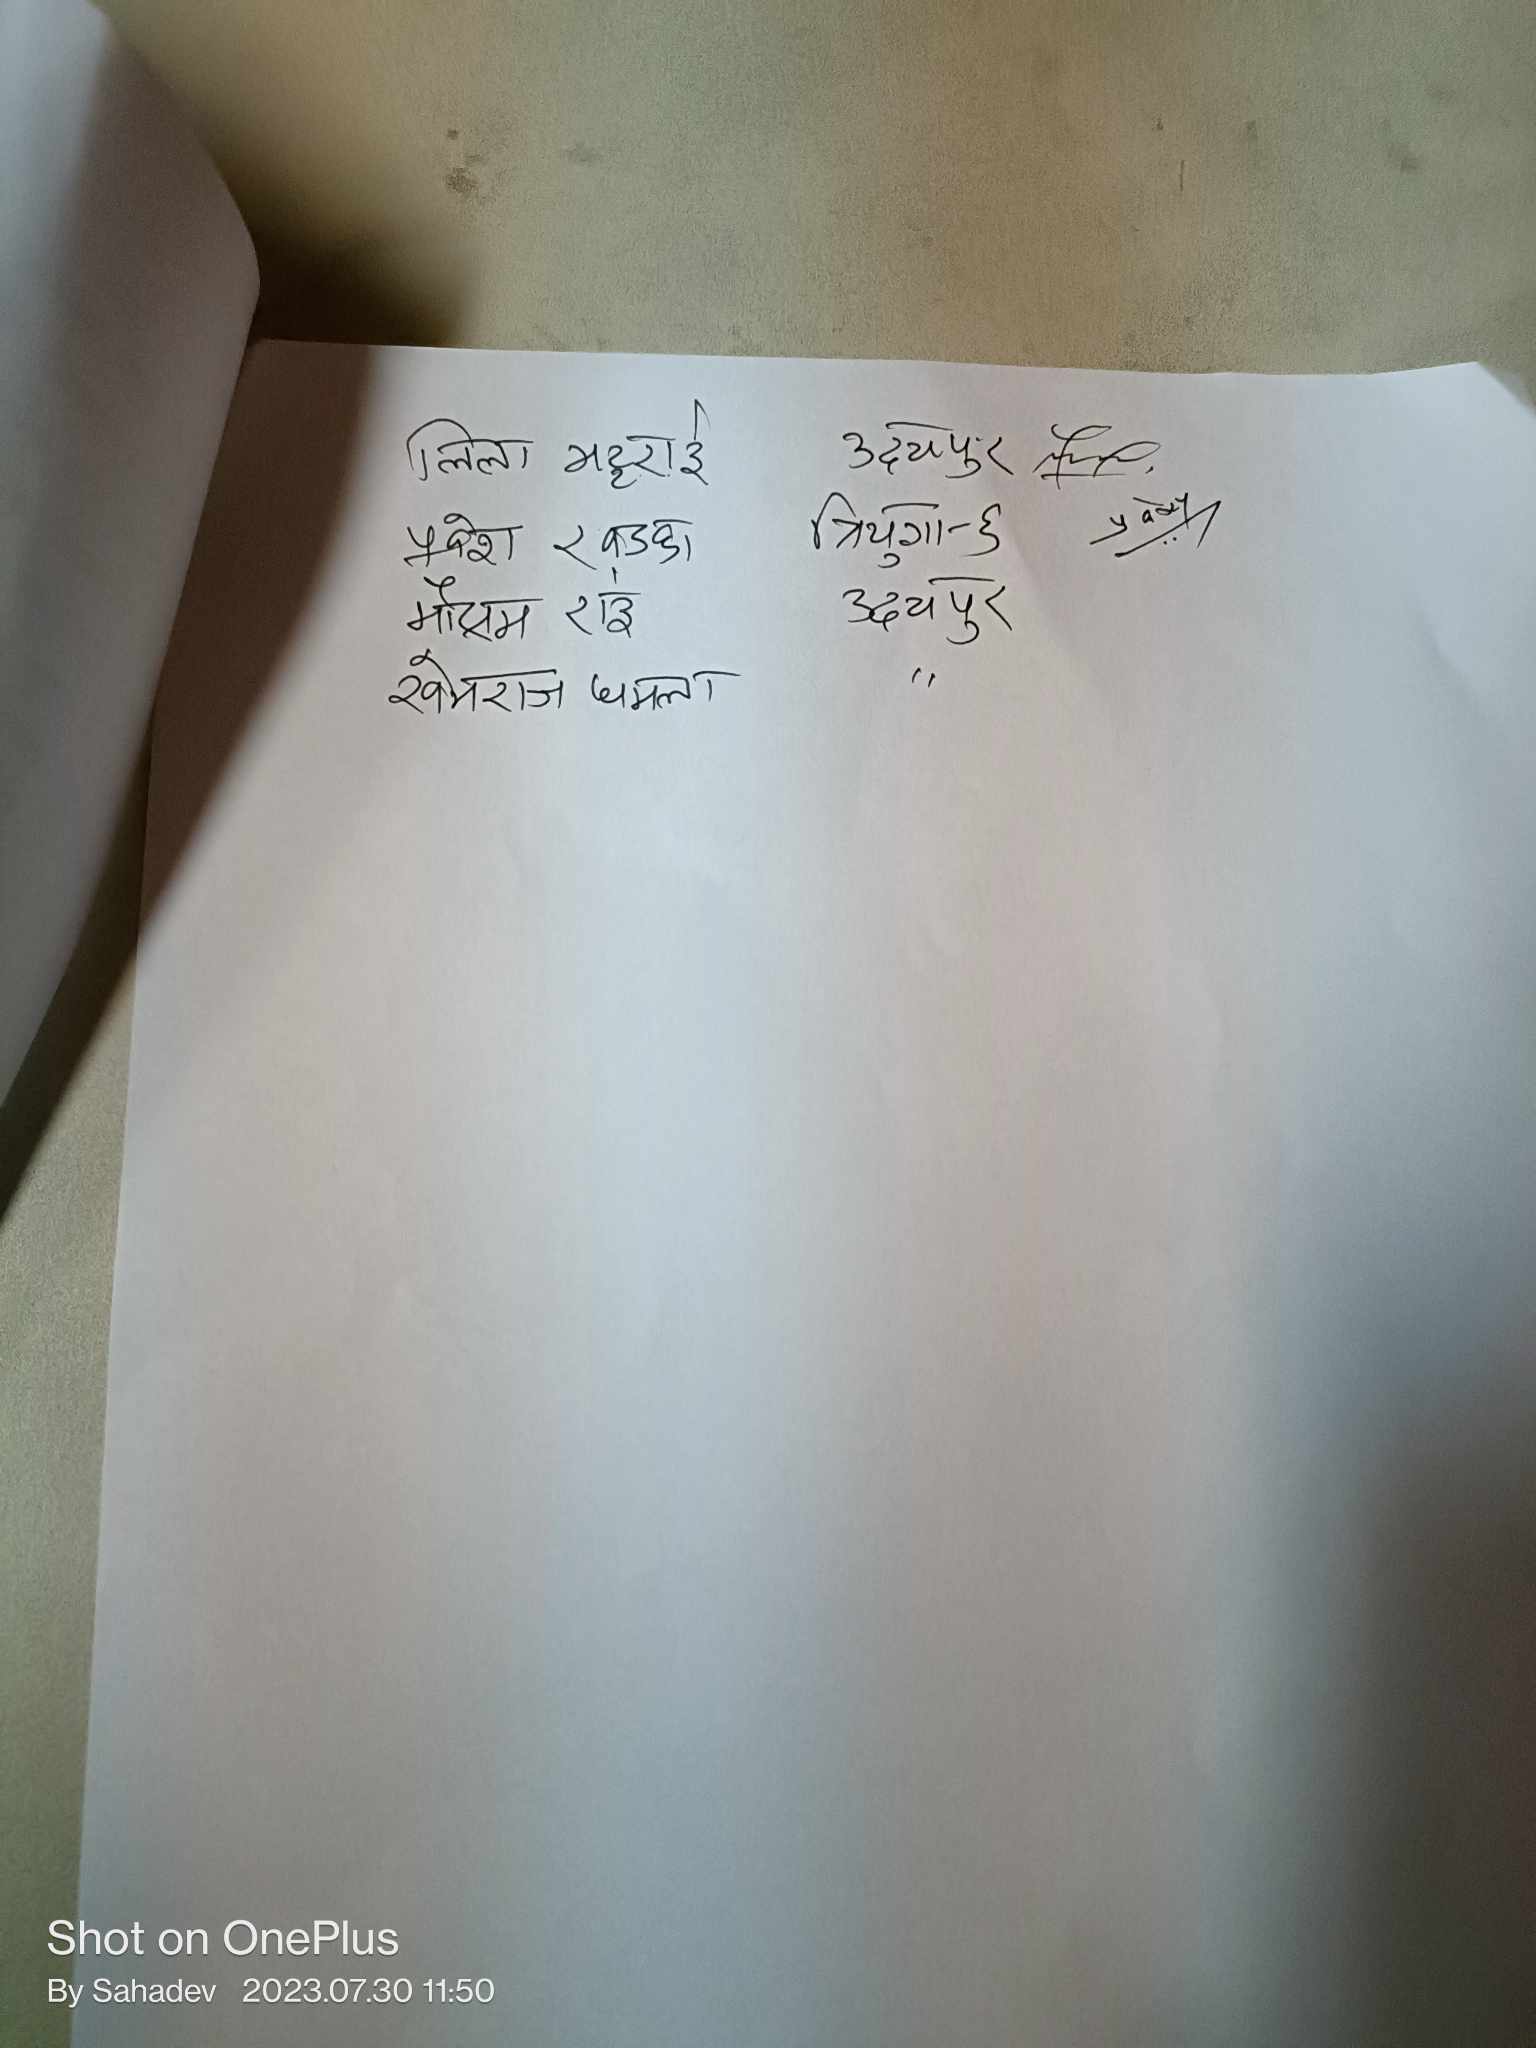 लिला भट्टराई उदयपुर
प्रवेश खड्का त्रियुगा-६ प्रवेश
मौसम राई उदयपुर
खेमराज धमला "
Shot on OnePlus
By Sahadev 2023.07.30 11:50